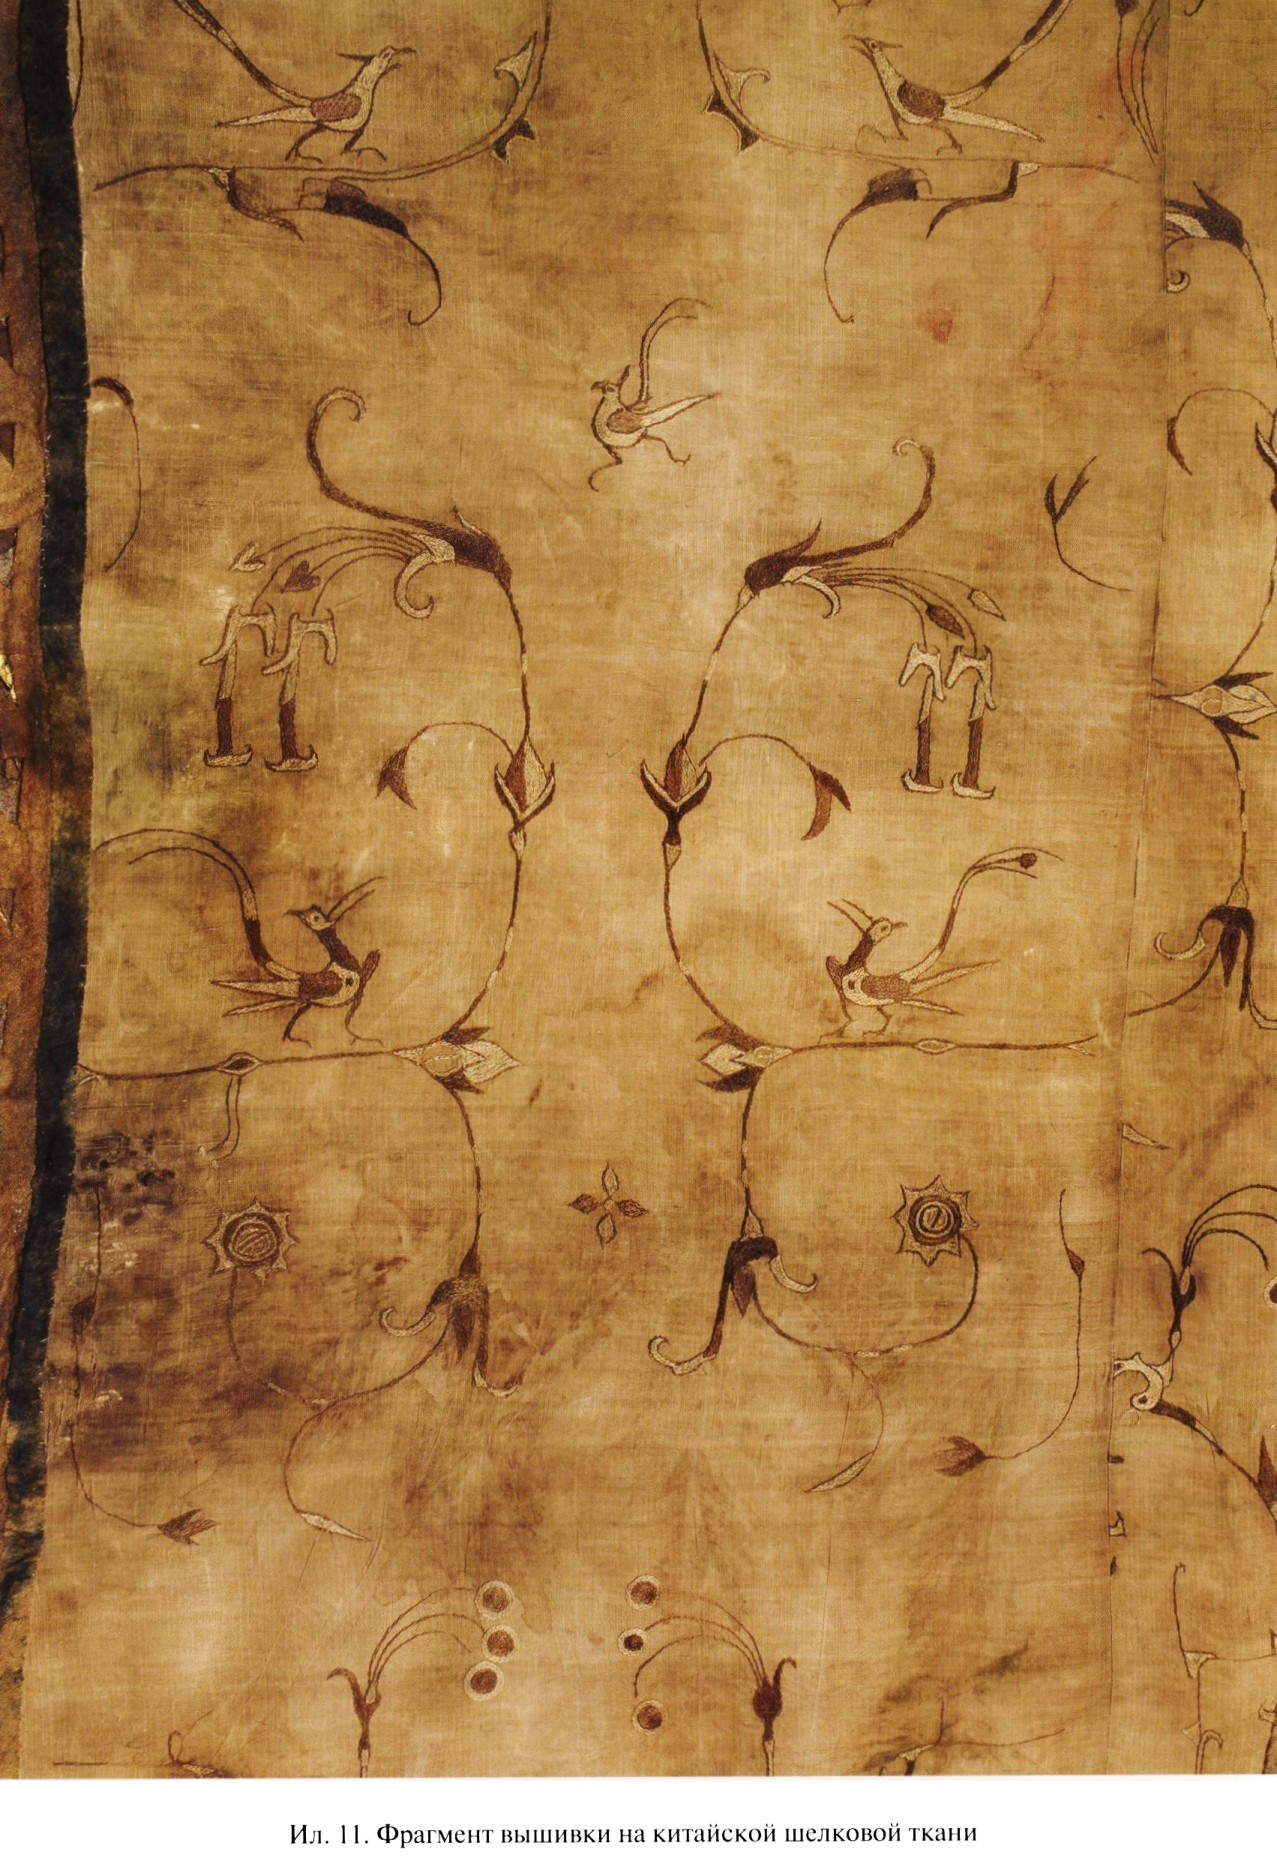 Ил. 11. Фрагмент вышивки на китайской шелковой ткани